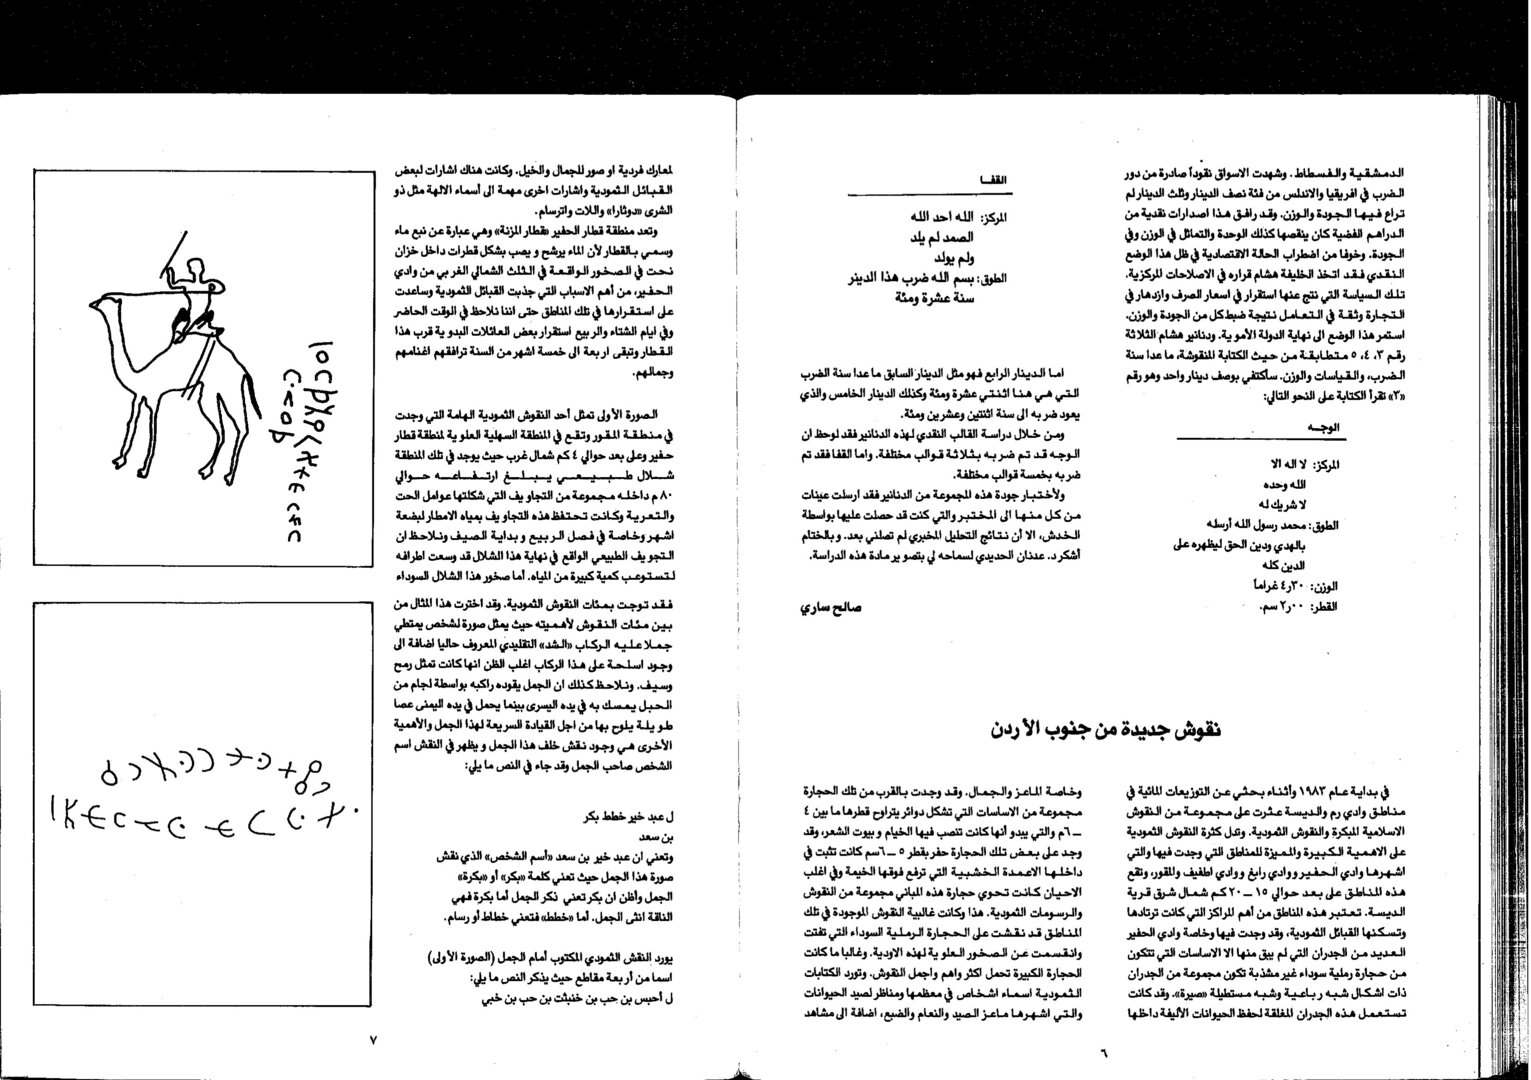 الدمشقية والفسطاط. وشهدت الاسواق نقوداً صادرة من دور
الضرب في افريقيا والاندلس من فئة نصف الدينار وثلث الدينار لم
تراع فيها الجودة والوزن. وقد رافق هذا اصدارات نقدية من
الدراهم الفضية كان ينقصها كذلك الوحدة والتماثل في الوزن وفي
الجودة. وخوفا من اضطراب الحالة الاقتصادية في ظل هذا الوضع
النقدي فقد اتخذ الخليفة هشام قراره في الاصلاحات المركزية.
تلك السياسة التي نتج عنها استقرار في اسعار الصرف وازدهار في
التجارة وثقة في التعامل نتيجة ضبط كل من الجودة والوزن.
استمر هذا الوضع الى نهاية الدولة الأموية. ودنانير هشام الثلاثة
رقم ٣، ٤، ٥ متطابقة من حيث الكتابة المنقوشة، ما عدا سنة
الضرب، والقياسات والوزن. سأكتفي بوصف دينار واحد وهو رقم
«٣» نقرأ الكتابة على النحو التالي:
الوجه
المركز: لا اله الا
الله وحده
لا شريك له
الطوق: محمد رسول الله أرسله
بالهدي ودين الحق ليظهره على
الدين كله
الوزن: ٤٫٣٠ غراماً
القطر: ٢٫٠٠ سم.
القفا
المركز: الله احد الله
الصمد لم يلد
ولم يولد
الطوق: بسم الله ضرب هذا الدينر
سنة عشرة ومئة
اما الدينار الرابع فهو مثل الدينار السابق ما عدا سنة الضرب
التي هي هنا اثنتي عشرة ومئة وكذلك الدينار الخامس والذي
يعود ضربه الى سنة اثنتين وعشرين ومئة.
ومن خلال دراسة القالب النقدي لهذه الدنانير فقد لوحظ ان
الوجه قد تم ضربه بثلاثة قوالب مختلفة. واما القفا فقد تم
ضربه بخمسة قوالب مختلفة.
ولأختبار جودة هذه المجموعة من الدنانير فقد ارسلت عينات
من كل منها الى المختبر والتي كنت قد حصلت عليها بواسطة
الخدش، الا أن نتائج التحليل المخبري لم تصلني بعد. وبالختام
أشكر د. عدنان الحديدي لسماحه لي بتصوير مادة هذه الدراسة.
صالح ساري
نقوش جديدة من جنوب الأردن
في بداية عام ١٩٨٣ وأثناء بحثي عن التوزيعات المائية في
مناطق وادي رم والديسة عثرت على مجموعة من النقوش
الاسلامية المبكرة والنقوش الثمودية. وتدل كثرة النقوش الثمودية
على الاهمية الكبيرة والمميزة للمناطق التي وجدت فيها والتي
اشهرها وادي الحفير ووادي رابغ ووادي اطفيف والمقور، وتقع
هذه المناطق على بعد حوالي ١٥ — ٢٠ كم شمال شرق قرية
الديسة. تعتبر هذه المناطق من أهم المراكز التي كانت ترتادها
وتسكنها القبائل الثمودية، وقد وجدت فيها وخاصة وادي الحفير
العديد من الجدران التي لم يبق منها الا الاساسات التي تتكون
من حجارة رملية سوداء غير مشذبة تكون مجموعة من الجدران
ذات اشكال شبه رباعية وشبه مستطيلة «صيرة». وقد كانت
تستعمل هذه الجدران المغلقة لحفظ الحيوانات الأليفة داخلها
وخاصة الماعز والجمال. وقد وجدت بالقرب من تلك الحجارة
مجموعة من الاساسات التي تشكل دوائر يتراوح قطرها ما بين ٤
— ٦م والتي يبدو أنها كانت تنصب فيها الخيام وبيوت الشعر، وقد
وجد على بعض تلك الحجارة حفر بقطر ٥ — ٦سم كانت تثبت في
داخلها الاعمدة الخشبية التي ترفع فوقها الخيمة وفي اغلب
الاحيان كانت تحوي حجارة هذه المباني مجموعة من النقوش
والرسومات الثمودية. هذا وكانت غالبية النقوش الموجودة في تلك
المناطق قد نقشت على الحجارة الرملية السوداء التي تفتت
وانقسمت عن الصخور العلوية لهذه الاودية. وغالبا ما كانت
الحجارة الكبيرة تحمل اكثر واهم واجمل النقوش. وتورد الكتابات
الثمودية اسماء اشخاص في معظمها ومناظر لصيد الحيوانات
والتي اشهرها ماعز الصيد والنعام والضبع، اضافة الى مشاهد
٦
لمعارك فردية او صور للجمال والخيل. وكانت هناك اشارات لبعض
القبائل الثمودية واشارات اخرى مهمة الى أسماء الالهة مثل ذو
الشرى «دوثارا» واللات واترسام.
وتعد منطقة قطار الحفير «قطار المزنة» وهي عبارة عن نبع ماء
وسمي بالقطار لأن الماء يرشح ويصب بشكل قطرات داخل خزان
نحت في الصخور الواقعة في الثلث الشمالي الغربي من وادي
الحفير، من أهم الاسباب التي جذبت القبائل الثمودية وساعدت
على استقرارها في تلك المناطق حتى اننا نلاحظ في الوقت الحاضر
وفي ايام الشتاء والربيع استقرار بعض العائلات البدوية قرب هذا
القطار وتبقى اربعة الى خمسة اشهر من السنة ترافقهم اغنامهم
وجمالهم.
الصورة الأولى تمثل أحد النقوش الثمودية الهامة التي وجدت
في منطقة المقور وتقع في المنطقة السهلية العلوية لمنطقة قطار
حفير وعلى بعد حوالي ٤ كم شمال غرب حيث يوجد في تلك المنطقة
شلال طبيعي يبلغ ارتفاعه حوالي
٨٠ م داخله مجموعة من التجاويف التي شكلتها عوامل الحت
والتعرية وكانت تحتفظ هذه التجاويف بمياه الامطار لبضعة
اشهر وخاصة في فصل الربيع وبداية الصيف ونلاحظ ان
التجويف الطبيعي الواقع في نهاية هذا الشلال قد وسعت اطرافه
لتستوعب كمية كبيرة من المياه. أما صخور هذا الشلال السوداء
فقد توجت بمئات النقوش الثمودية. وقد اخترت هذا المثال من
بين مئات النقوش لأهميته حيث يمثل صورة لشخص يمتطي
جملا عليه الركاب «الشد» التقليدي المعروف حاليا اضافة الى
وجود اسلحة على هذا الركاب اغلب الظن انها كانت تمثل رمح
وسيف. ونلاحظ كذلك ان الجمل يقوده راكبه بواسطة لجام من
الحبل يمسك به في يده اليسرى بينما يحمل في يده اليمنى عصا
طويلة يلوح بها من اجل القيادة السريعة لهذا الجمل والأهمية
الأخرى هي وجود نقش خلف هذا الجمل ويظهر في النقش اسم
الشخص صاحب الجمل وقد جاء في النص ما يلي:
ل عبد خير خطط بكر
بن سعد
وتعني ان عبد خير بن سعد «أسم الشخص» الذي نقش
صورة هذا الجمل حيث تعني كلمة «بكر» أو «بكرة»
الجمل وأظن ان بكر تعني ذكر الجمل أما بكرة فهي
الناقة انثى الجمل. أما «خطط» فتعني خطاط أو رسام.
يورد النقش الثمودي المكتوب أمام الجمل (الصورة الأولى)
اسما من أربعة مقاطع حيث يذكر النص ما يلي:
ل أحبس بن حب بن خنبثت بن حب بن خبي
٧